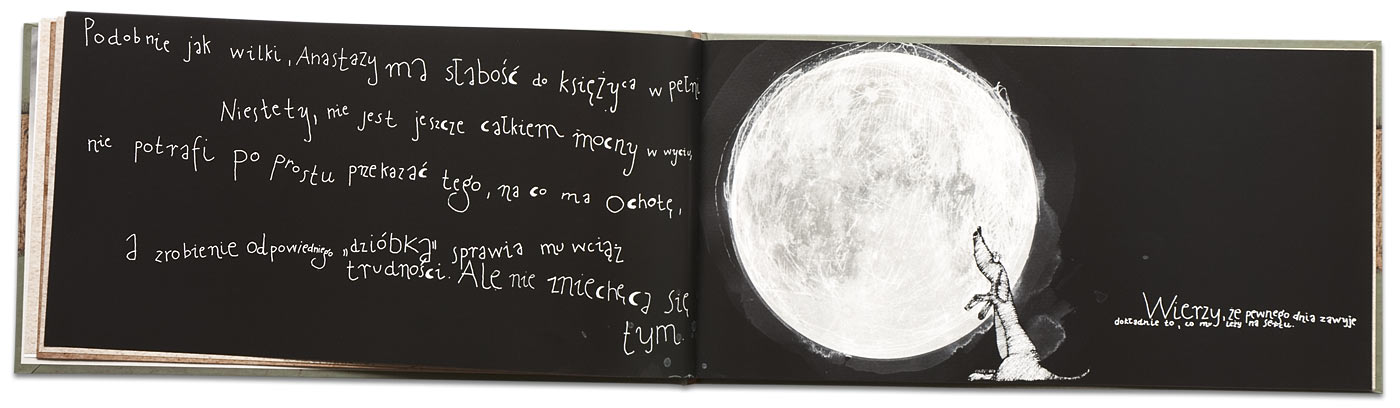 Podobnie jak wilki, Anastazy ma słabość do księżyca w pełni
Niestety, nie jest jeszcze całkiem mocny w wyciu,
nie potrafi po prostu przekazać tego, na co ma ochotę,
a zrobienie odpowiedniego „dzióbka" sprawia mu wciąż
trudności. Ale nie zniechęca się
tym.
Wierzy, że pewnego dnia zawyje
dokładnie to, co mu leży na sercu.